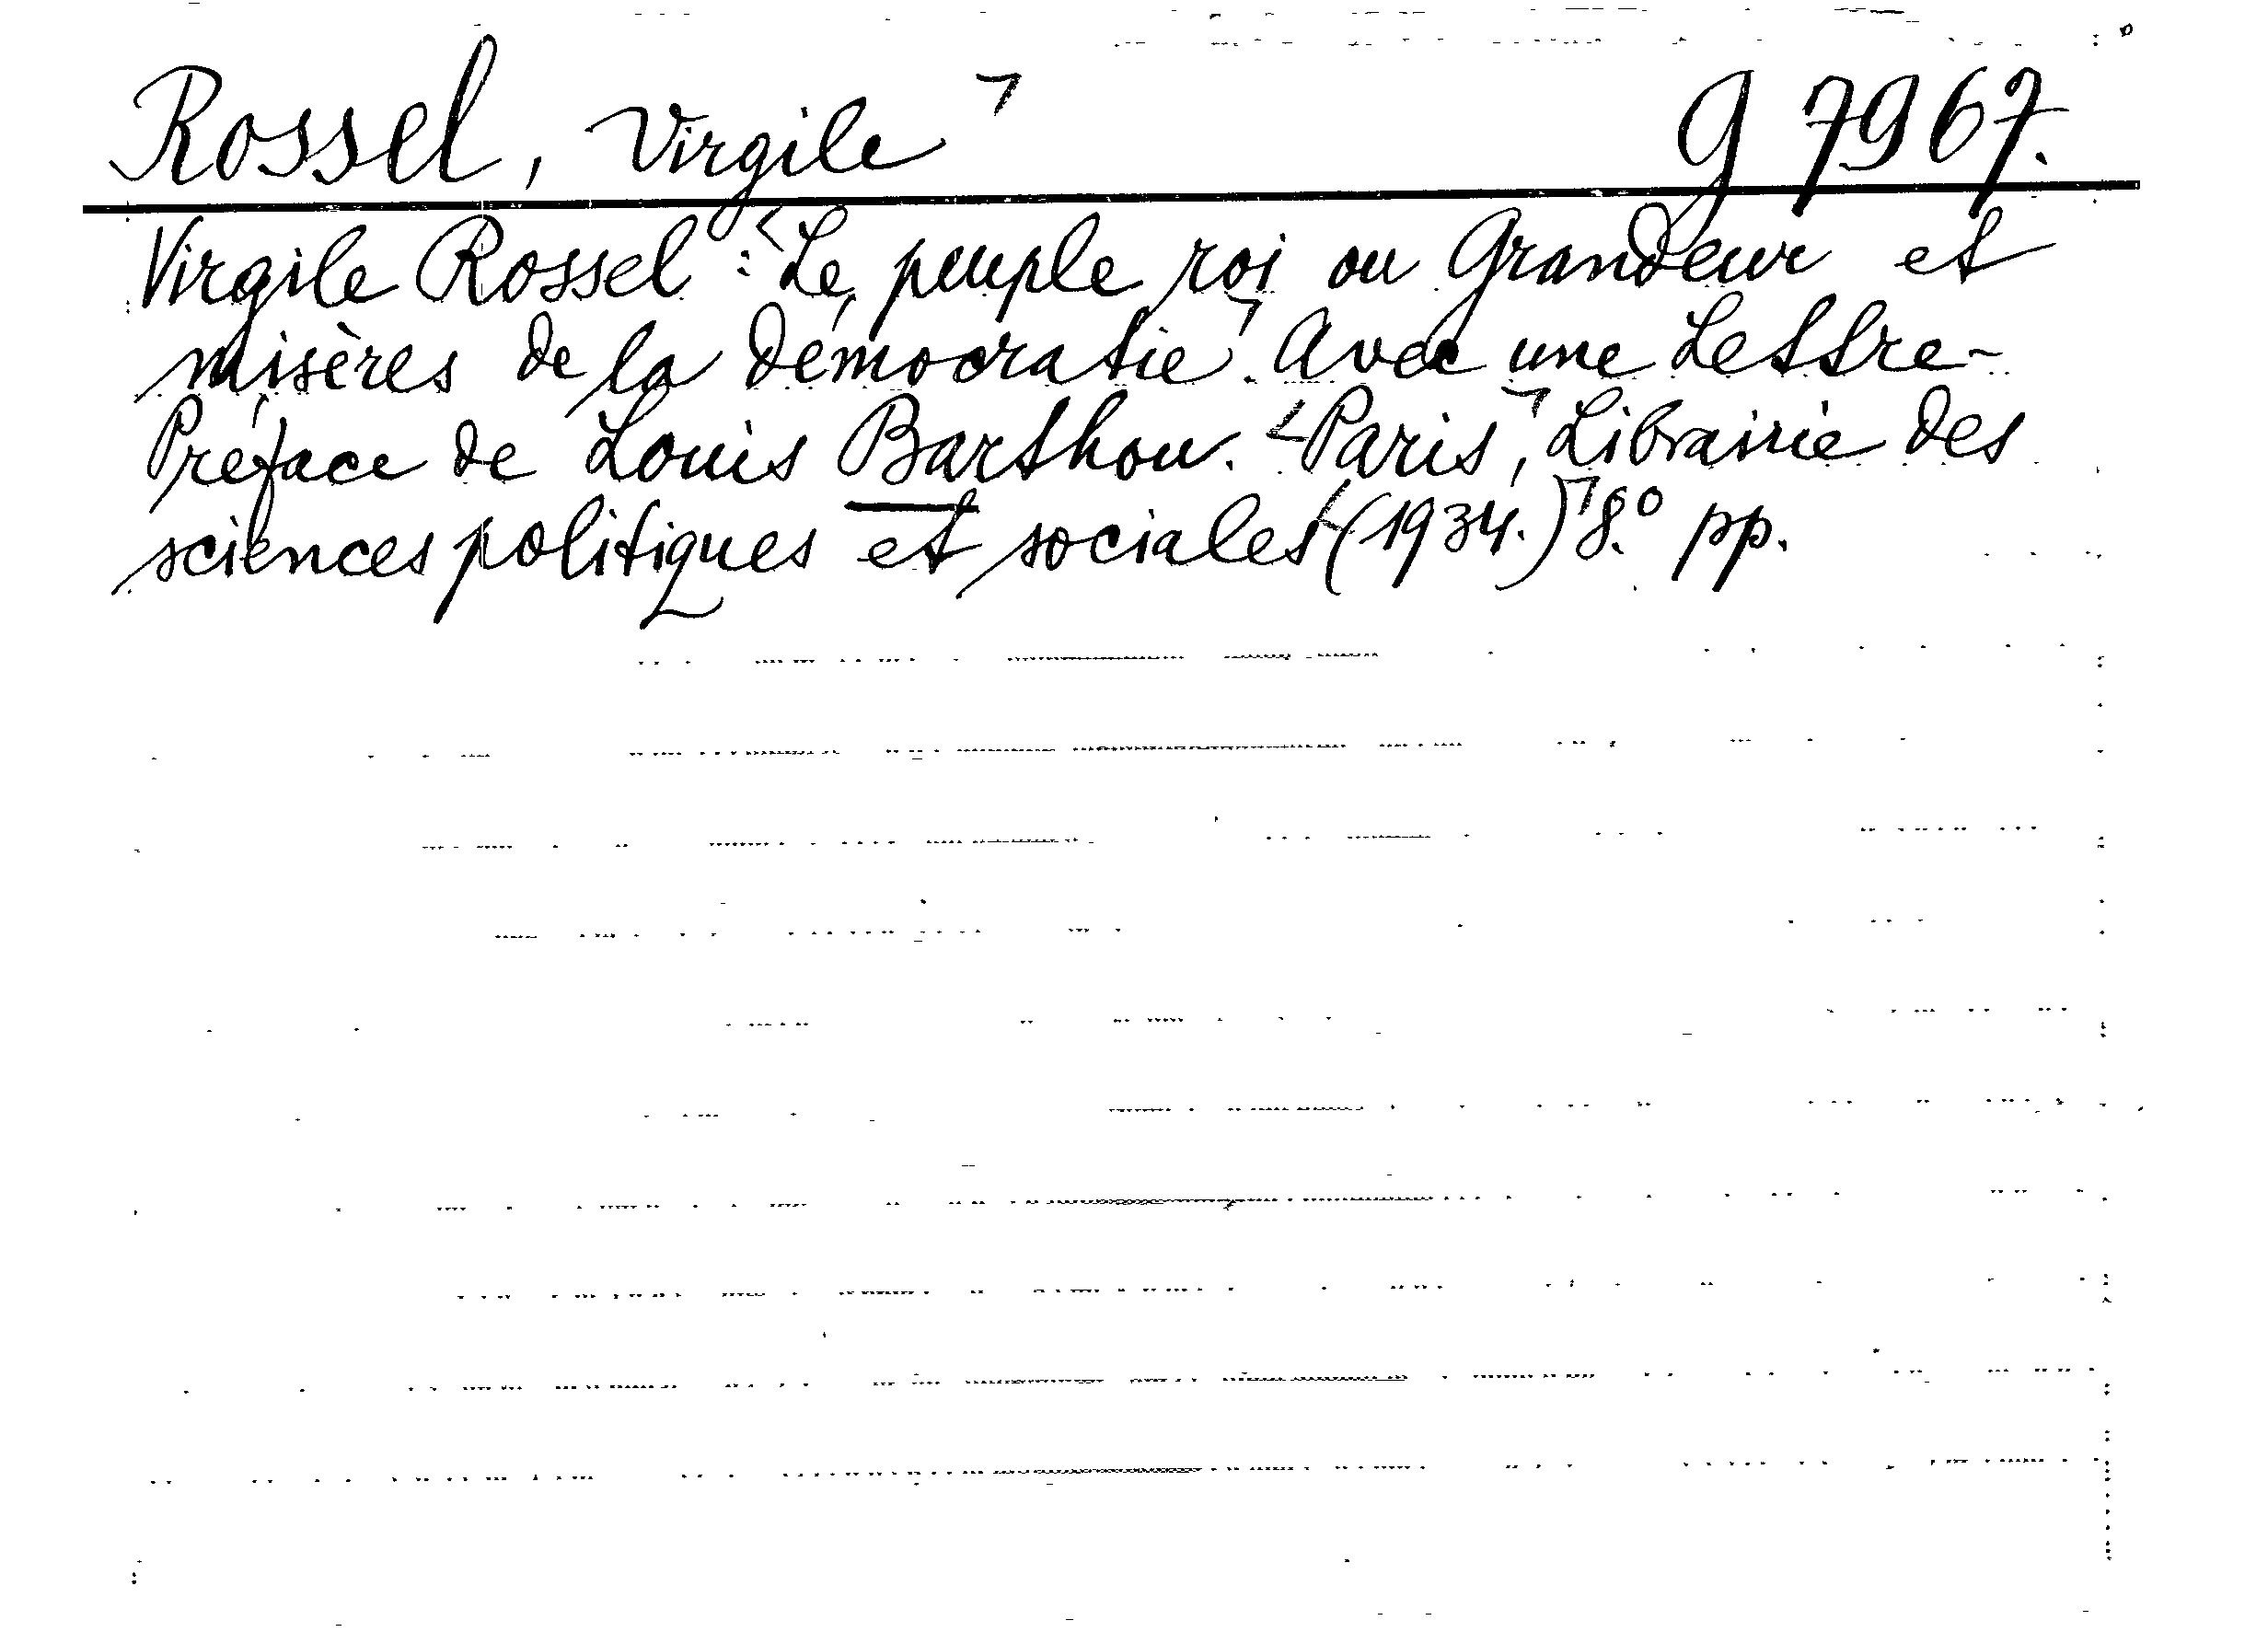 Rossel, Virgile ¬ G 7967.
Virgile Rossel: <Le peuple roi ou Grandeur et
misères de la démocratie¬. Avec une Lettre-
Préface de Louis Barthou. <Paris¬, Librairie des
sciences politiques et sociales <(1934.)¬ 8.° pp.